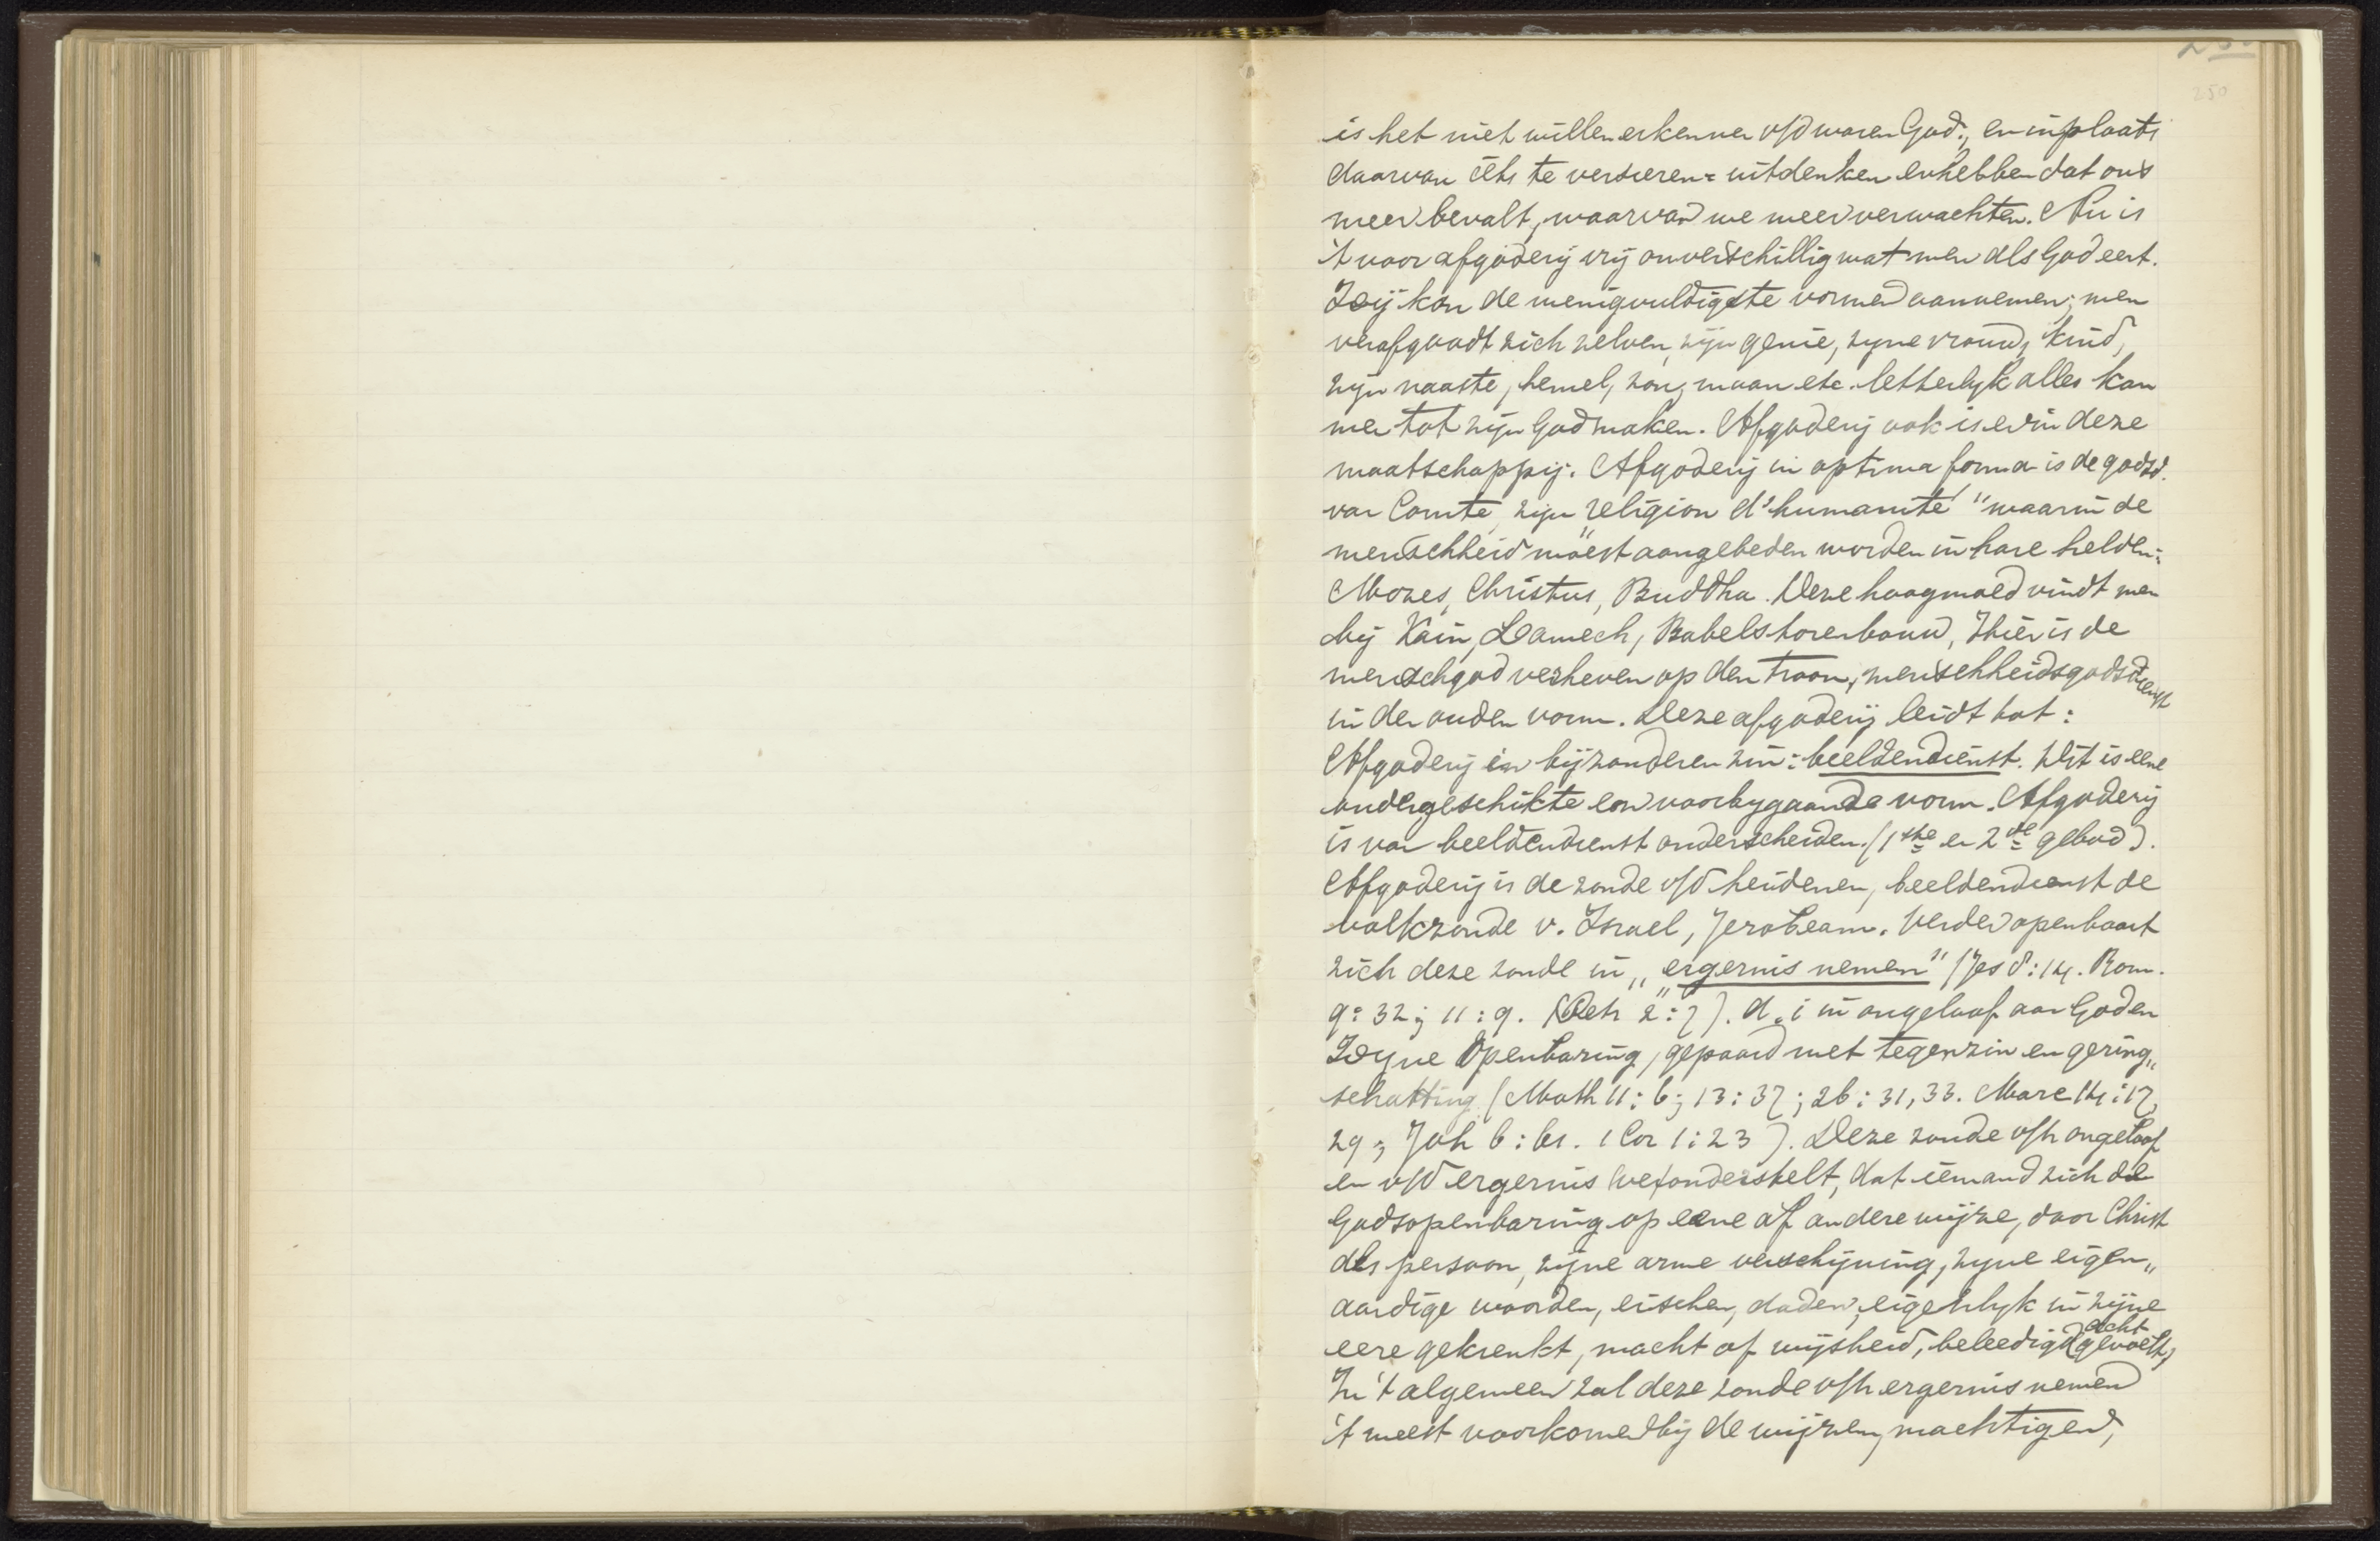 250
is het niet willen erkennen v/d waren God., en inplaats
daarvan iets te versieren = uitdenken en hebben dat ons
meer bevalt, waarvan we meer verwachten. Nu is
't voor afgoderij vrij onverschillig wat men als God eert.
Zij kan de menigvuldigste vormen aannemen; men
verafgoodt zich zelven, zijn genie, zyne vrouw, kind,
zijn naaste, hemel, zon, maan etc. letterlyk alles kan
men tot zijn God maken. Afgoderij ook is er in deze
maatschappij. Afgoderij in optima forma is de godsd.
van Comte, zijn „religion d'humanité" waarin de
menschheid moest aangebeden worden in hare helden:
Mozes, Christus, Buddha. Deze hoogmoed vindt men
bij Kaïn, Lamech, Babelstorenbouw, Hier is de
menschgod verheven op den troon, menschheidsgodsdienst
in den ouden vorm. Deze afgoderij leidt tot:
Afgoderij in bijzonderen zin: beeldendienst. Dit is eene
ondergeschikte en voorbygaande vorm. Afgoderij
is van beeldendienst onderscheiden. (1ste en 2de gebod).
Afgoderij is de zonde v/d heidenen, beeldendienst de
volkzonde v. Israel, Jerobeam. Verder openbaart
zich deze zonde in „ergernis nemen" (Jes 8:14. Rom.
9:32; 11:9. 1 Petr 2:7). d.i in ongeloof aan God en
Zyne Openbaring, gepaard met tegenzin en gering„
schatting (Math 11:6; 13:37; 26:31,33. Marc 14:17,
29; Joh 6:61. 1 Cor 1:23). Deze zonde v/h ongeloof
en v/d ergernis veronderstelt, dat iemand zich de
Godsopenbaring op eene of andere wijze, door Christ
als persoon, zijne arme verschijning, zyne eigen„
aardige woorden, eischen, daden, eigenlyk in zijne
eere gekrenkt, macht of wijsheid, beleedigd acht gevoelt,
In 't algemeen zal deze zonde v/h ergernis nemen
't meest voorkomen bij de wijzen, machtigen,